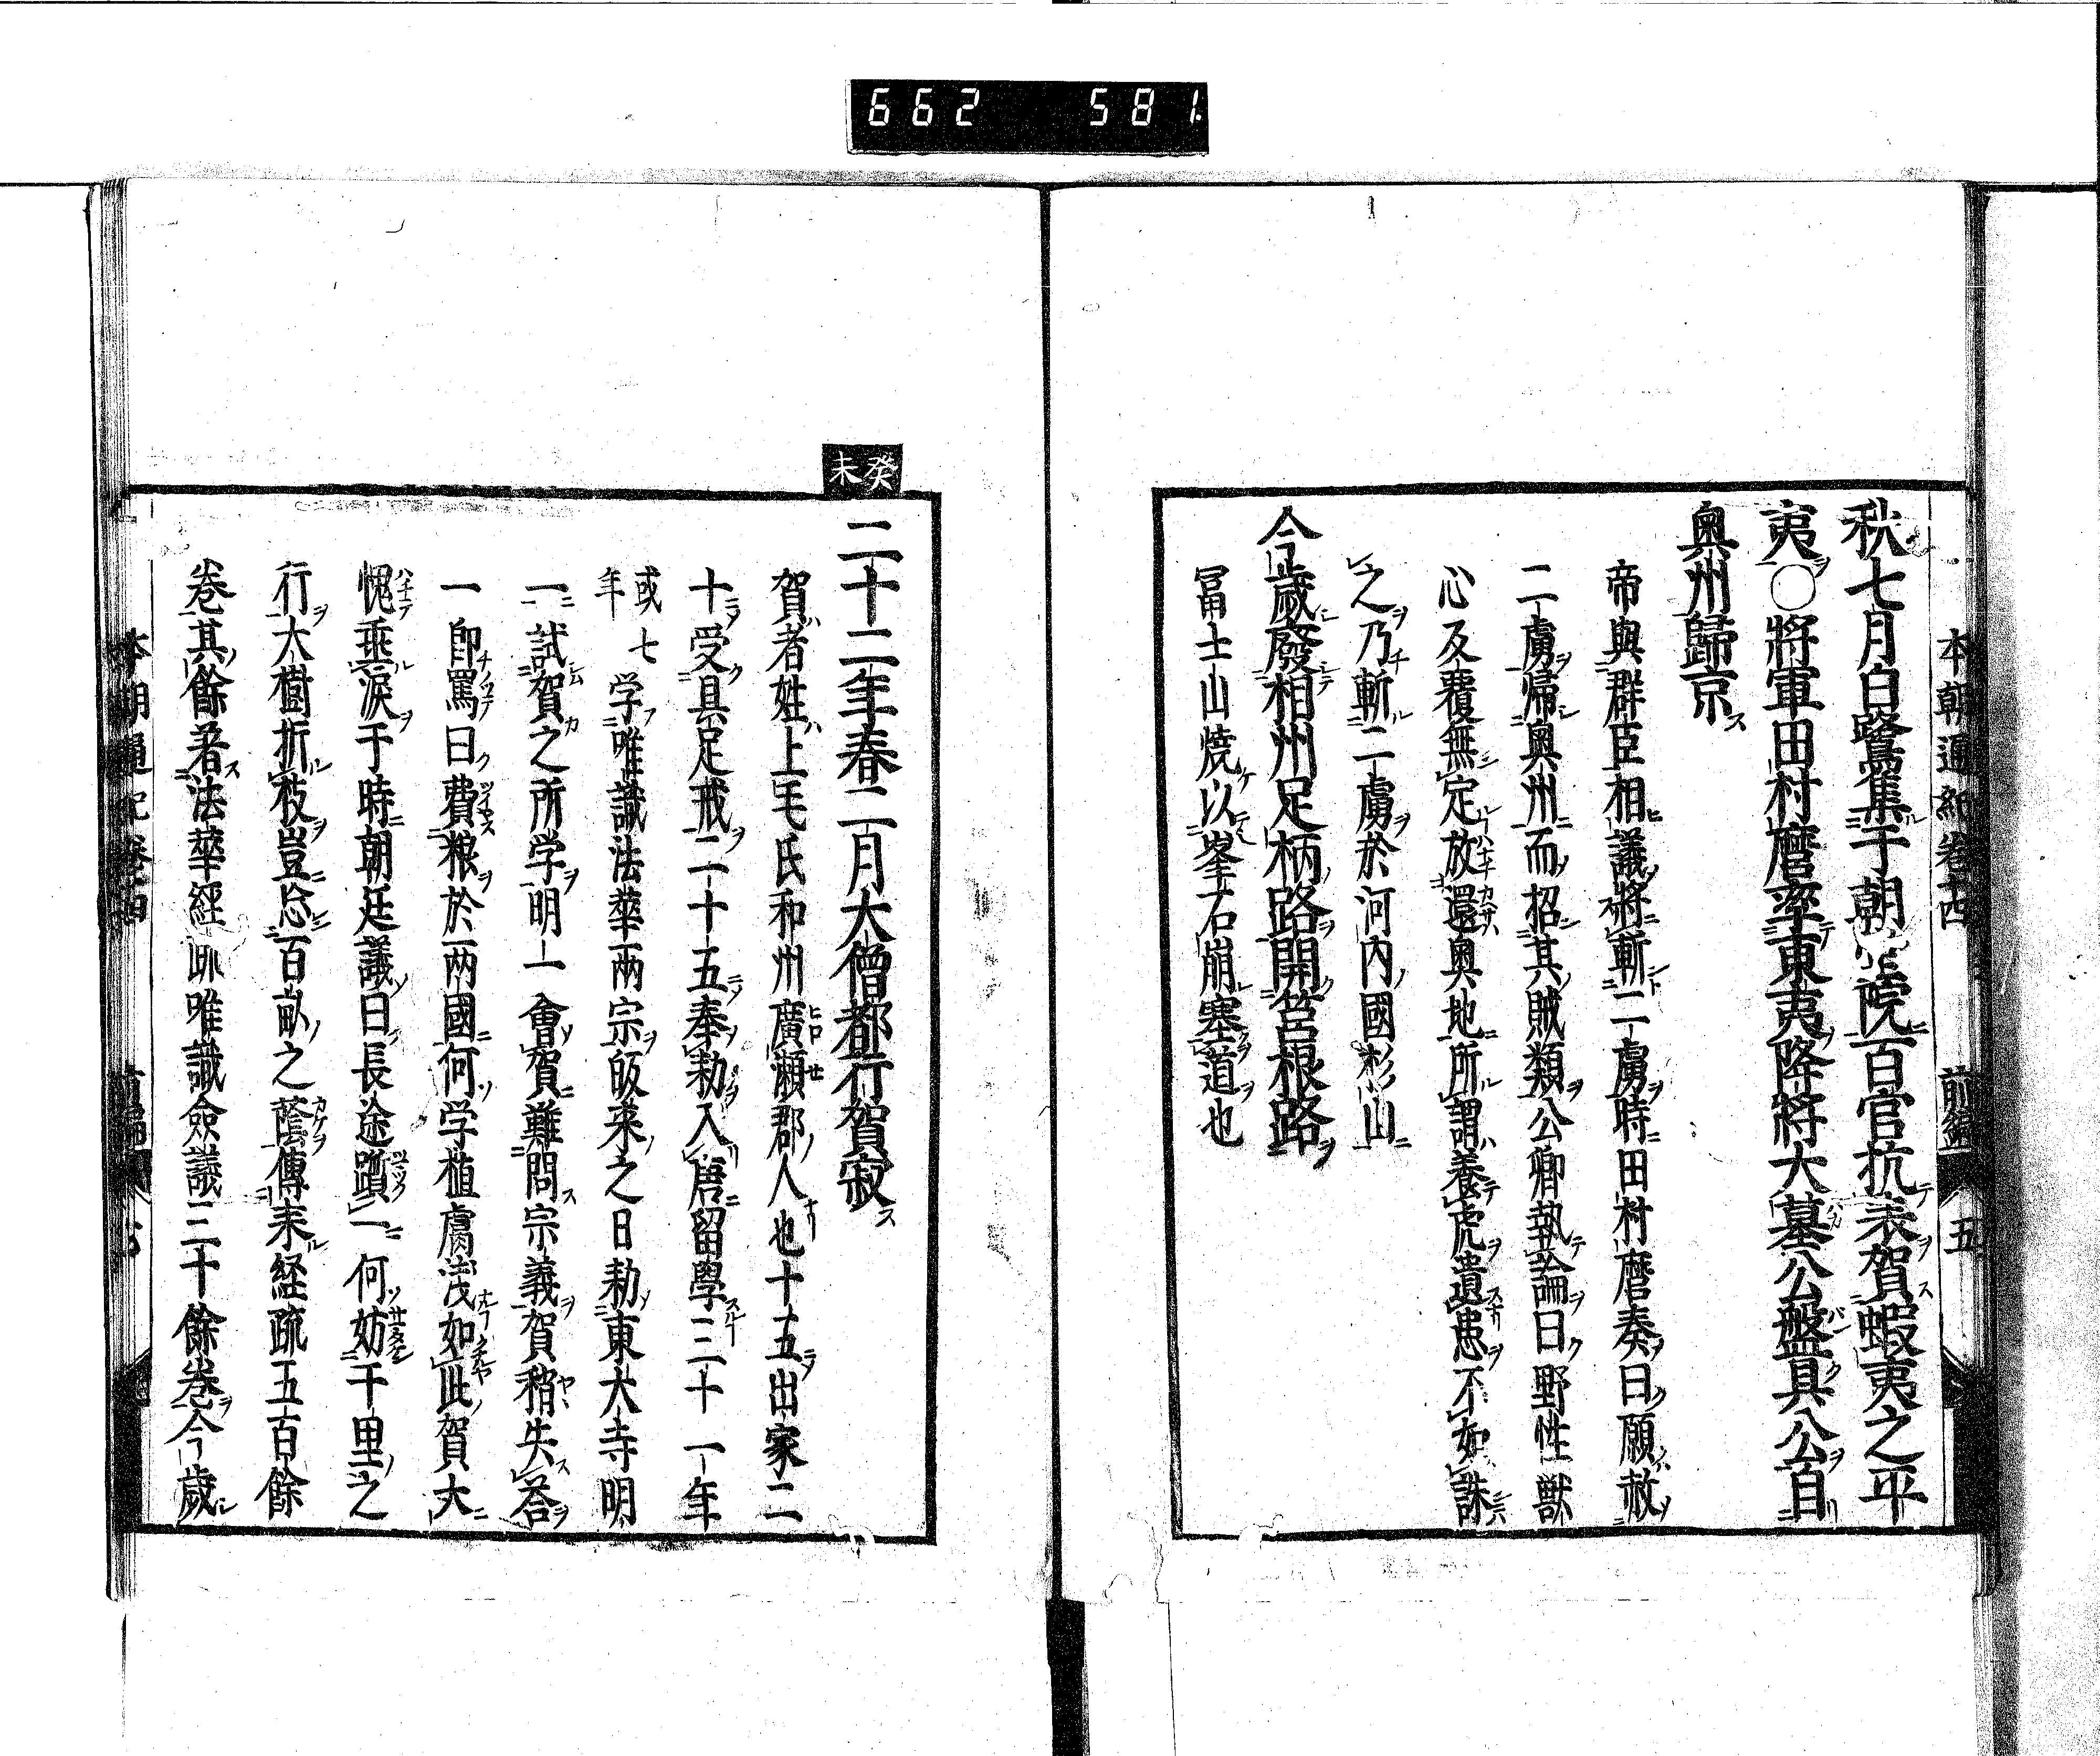 662 581
本朝通紀卷十四 前編 五
秋七月白鷺集于朝堂院百官抗表賀蝦夷之平
夷○將軍田村麿率東夷降將大墓公盤具公自
奧州歸京
帝與群臣相議將斬二虜時田村麿奏曰願赦
二虜帰奧州而招其賊類公卿執論曰野性獸
心反覆無定放還奧地所謂養虎遺患不如誅
之乃斬二虜於河內國杉山
今歲廢相州足柄路開筥根路
冨士山燒以峯石崩塞道也
癸未
二十二年春二月大僧都行賀寂
賀者姓上毛氏和州廣瀬郡人也十五出家二
十受具足戒二十五奉勅入唐留學三十一年
或七年 学唯識法華兩宗皈来之日勅東大寺明
一試賀之所学明一會賀難問宗義賀稍失荅
一卽罵曰費粮於兩國何学植膚淺如此賀大
愧垂淚于時朝廷議曰長途躓一何妨千里之
行大樹折枝豈忘百畝之蔭傳来経疏五百餘
卷其餘著法華經疏唯識僉議三十餘卷今歲